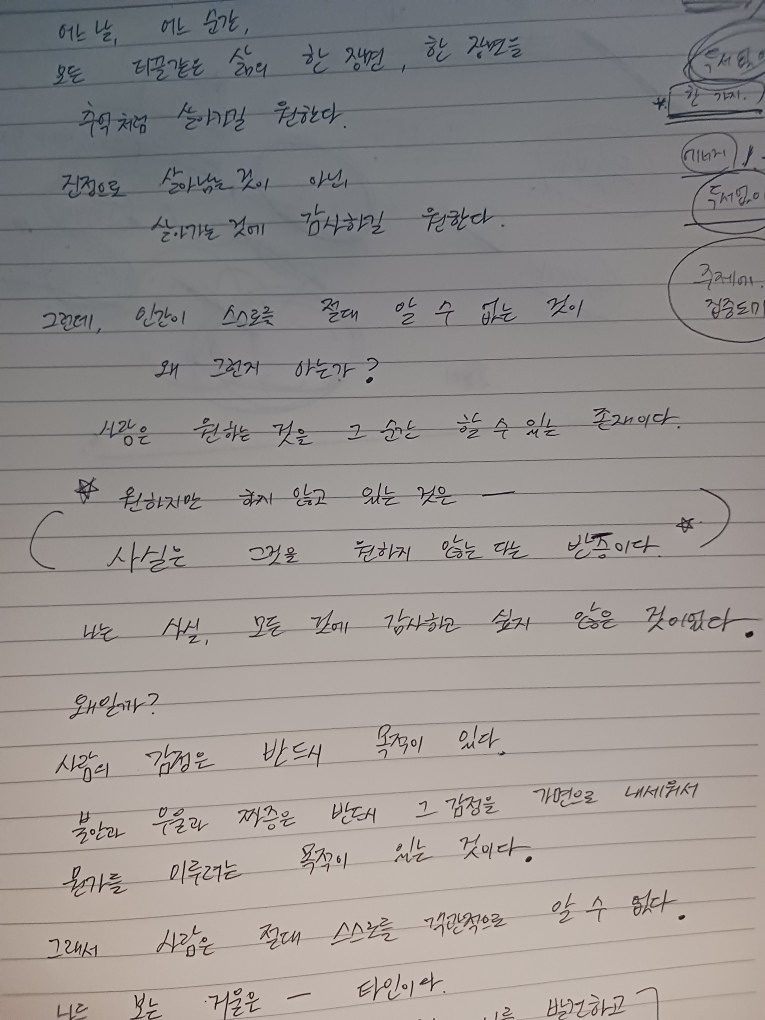 어느 날, 어느 순간,
모든 티끌같은 삶의 한 장면, 한 장면들
추억처럼 살아가길 원한다.
진정으로 살아남는 것이 아닌,
살아가는 것에 감사하길 원한다.
그런데, 인간이 스스로를 절대 알 수 없는 것이
왜 그런지 아는가?
사람은 원하는 것을 그 순간 할 수 있는 존재이다.
원하지만 하지 않고 있는 것은 —
사실은 그것을 원하지 않는 다는 반증이다.
나는 사실, 모든 것에 감사하고 싶지 않은 것이었다.
왜일까?
사람의 감정은 반드시 목적이 있다.
불안과 우울과 짜증은 반드시 그 감정을 가면으로 내세워서
뭔가를 이루려는 목적이 있는 것이다.
그래서 사람은 절대 스스로를 객관적으로 알 수 없다.
보는 거울은 — 타인이다.
발견하고
두서없이
한 가지.
에너지
두서없이
주제에.
집중도